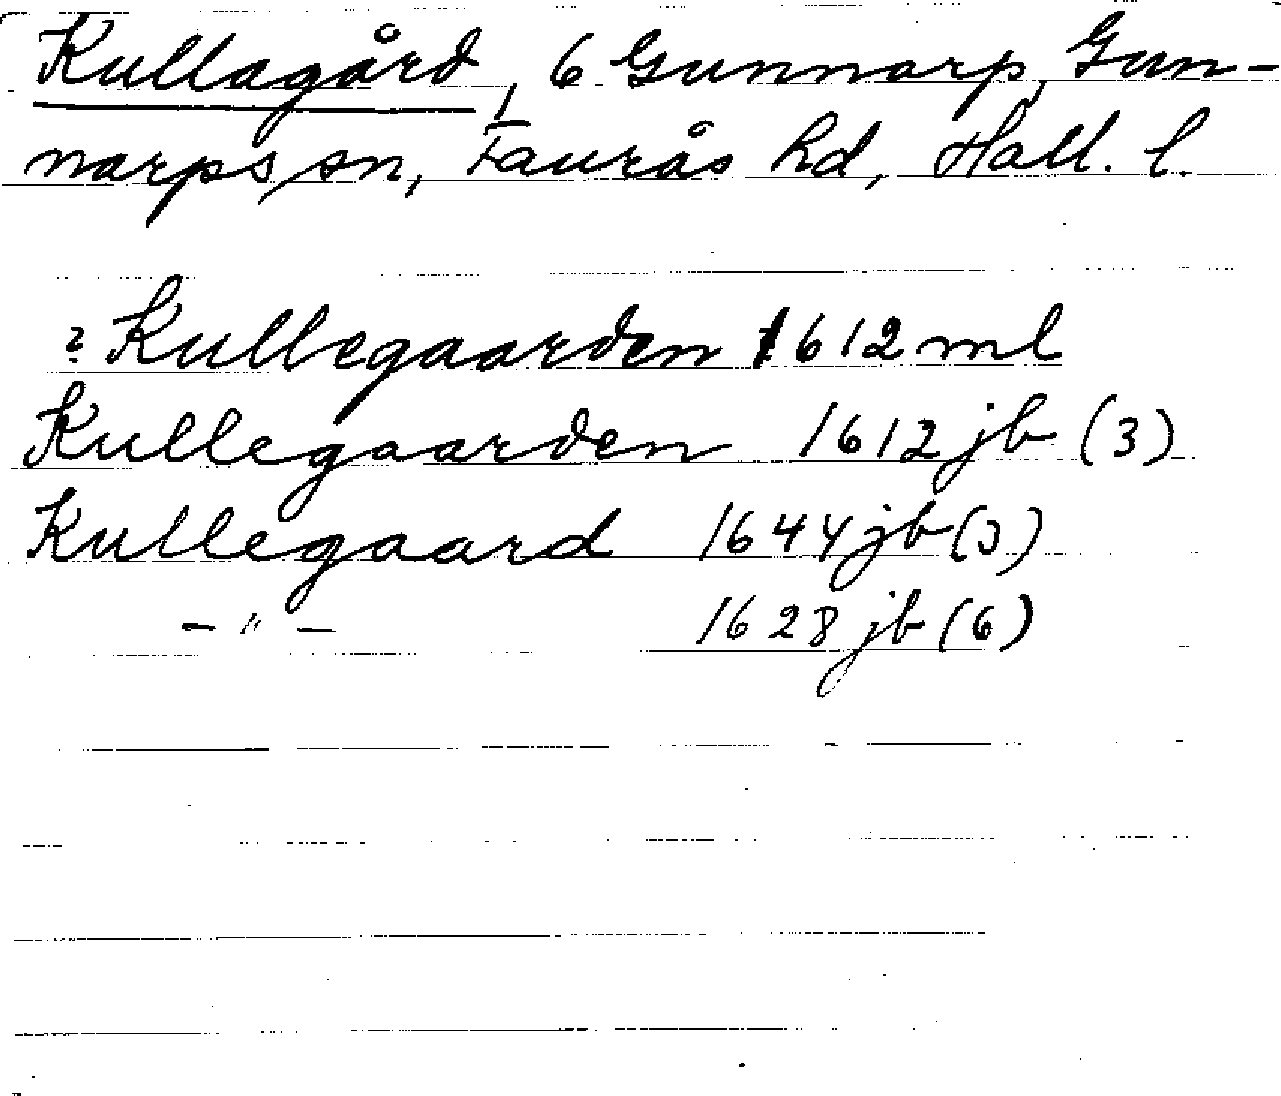 Kullagård, 6 Gunnarp, Gun-
narps sn, Faurås hd, Hall. l.
? Kullegaarden 1612 ml
Kullegaarden 1612 jb (3)
Kullegaard 1644 jb (3)
– " – 1628 jb (6)